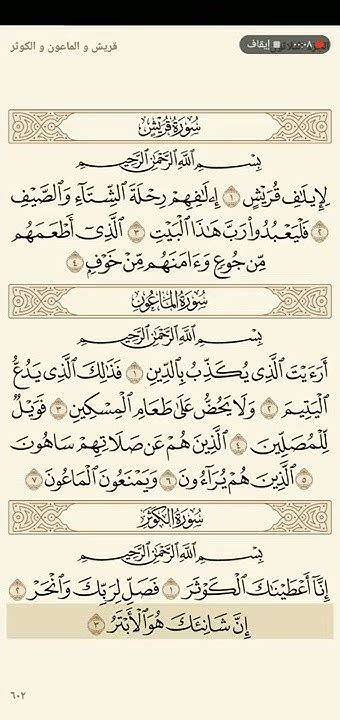 قريش و الماعون و الكوثر
٠٠:٠٨ إيقاف
سُورَةُ قُرَيْشٍ
بِسْمِ اللَّهِ الرَّحْمَٰنِ الرَّحِيمِ
لِإِيلَٰفِ قُرَيْشٍ ١ إِۦلَٰفِهِمْ رِحْلَةَ الشِّتَآءِ وَالصَّيْفِ
٢ فَلْيَعْبُدُوا۟ رَبَّ هَٰذَا الْبَيْتِ ٣ الَّذِىٓ أَطْعَمَهُم
مِّن جُوعٍ وَءَامَنَهُم مِّنْ خَوْفٍۭ ٤
سُورَةُ الْمَاعُونِ
بِسْمِ اللَّهِ الرَّحْمَٰنِ الرَّحِيمِ
أَرَءَيْتَ الَّذِى يُكَذِّبُ بِالدِّينِ ١ فَذَٰلِكَ الَّذِى يَدُعُّ
الْيَتِيمَ ٢ وَلَا يَحُضُّ عَلَىٰ طَعَامِ الْمِسْكِينِ ٣ فَوَيْلٌ
لِّلْمُصَلِّينَ ٤ الَّذِينَ هُمْ عَن صَلَاتِهِمْ سَاهُونَ
٥ الَّذِينَ هُمْ يُرَآءُونَ ٦ وَيَمْنَعُونَ الْمَاعُونَ ٧
سُورَةُ الْكَوْثَرِ
بِسْمِ اللَّهِ الرَّحْمَٰنِ الرَّحِيمِ
إِنَّآ أَعْطَيْنَٰكَ الْكَوْثَرَ ١ فَصَلِّ لِرَبِّكَ وَانْحَرْ ٢
إِنَّ شَانِئَكَ هُوَ الْأَبْتَرُ ٣
٦٠٢